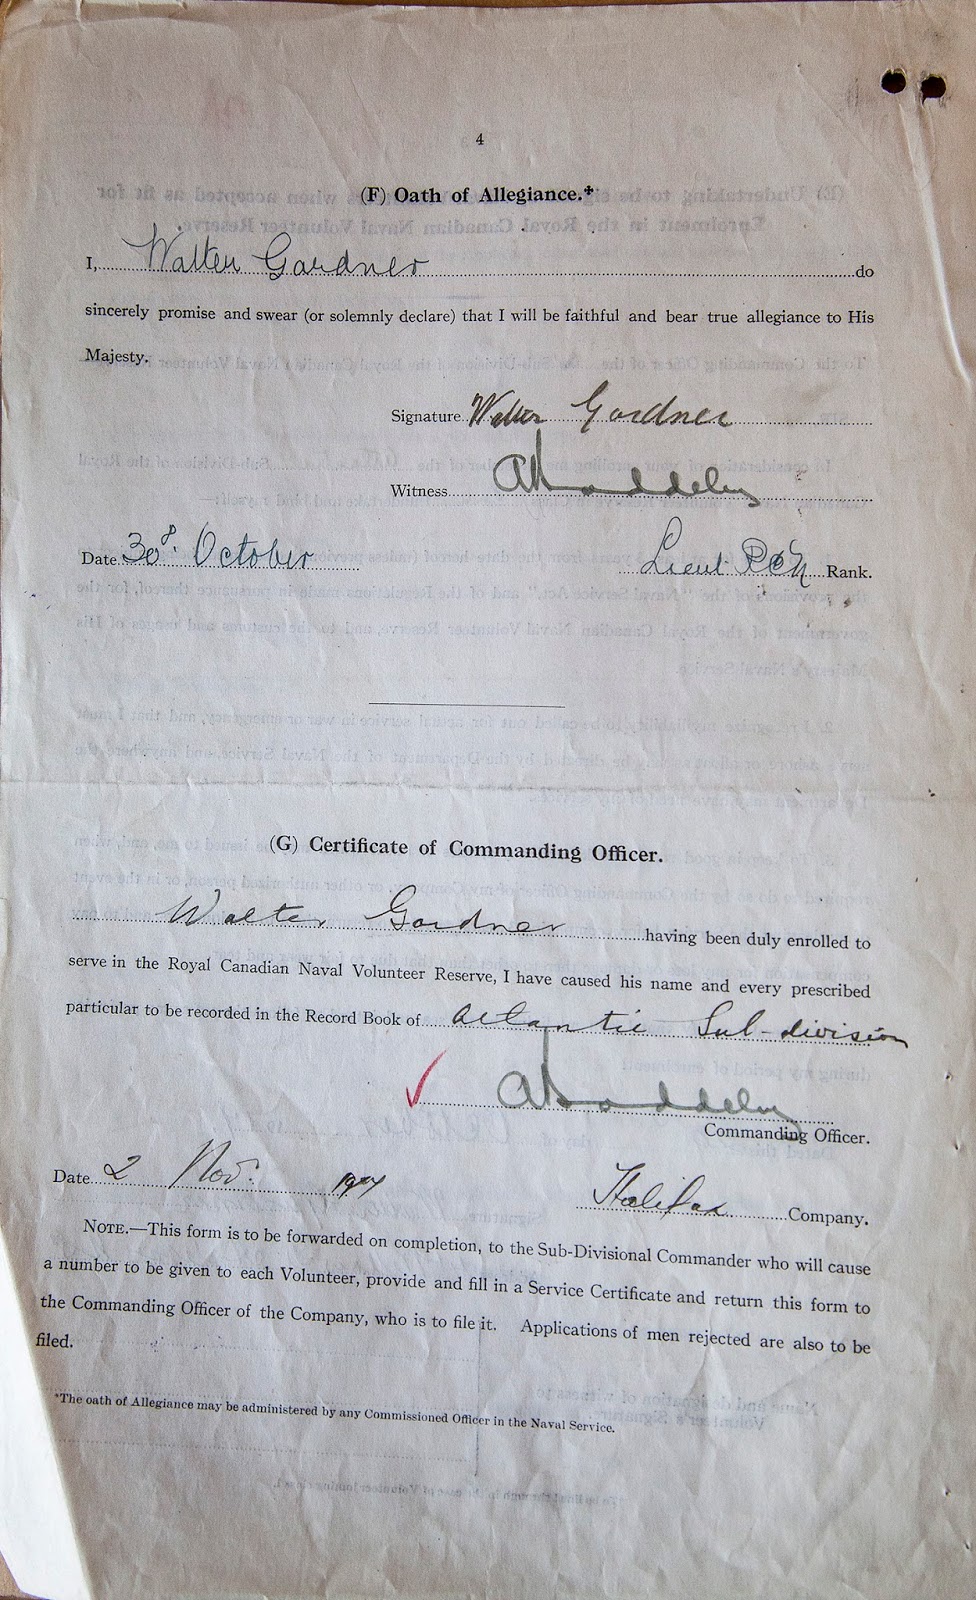 4
(F) Oath of Allegiance.*
I, Walter Gardner do
sincerely promise and swear (or solemnly declare) that I will be faithful and bear true allegiance to His
Majesty.
Signature Walter Gardner
Witness
Date 30 October Lieut RCN Rank.
(G) Certificate of Commanding Officer.
Walter Gardner having been duly enrolled to
serve in the Royal Canadian Naval Volunteer Reserve, I have caused his name and every prescribed
particular to be recorded in the Record Book of Atlantic Sub-division
Commanding Officer.
Date 2 Nov. Halifax Company.
NOTE.—This form is to be forwarded on completion, to the Sub-Divisional Commander who will cause
a number to be given to each Volunteer, provide and fill in a Service Certificate and return this form to
the Commanding Officer of the Company, who is to file it. Applications of men rejected are also to be
filed.
*The oath of Allegiance may be administered by any Commissioned Officer in the Naval Service.